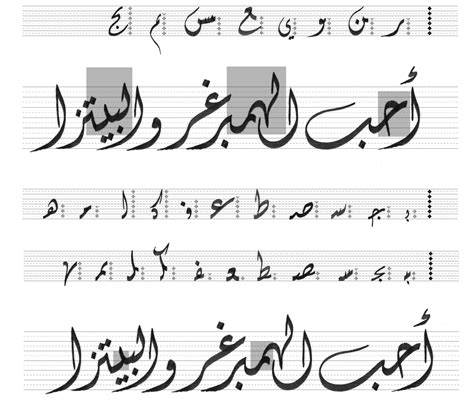 ر ن و ي ع س م ج
أحب الهمبرغر والبيتزا
بـ جـ سـ صـ ط عـ فـ كـ لـ مـ هـ
ـبـ ـجـ ـسـ ـصـ ـطـ ـعـ ـفـ ـكـ ـلـ ـمـ ـهـ
أحب الهمبرغر والبيتزا